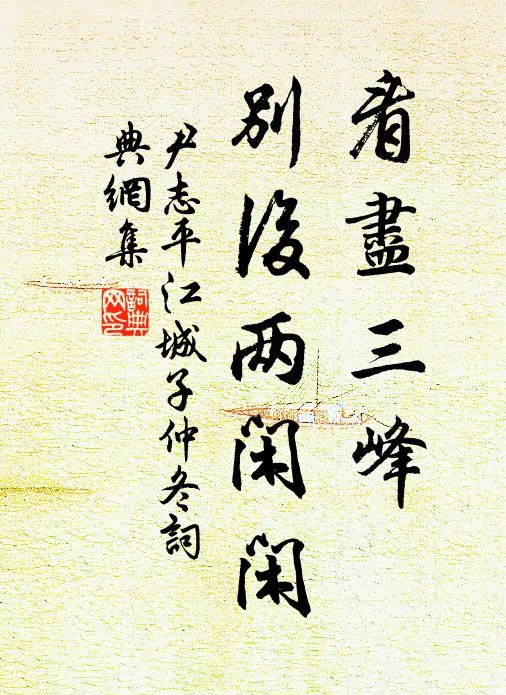 看盡三峰
別後两閑閑
尹志平江城子仲冬詞
典網集
詞典网印